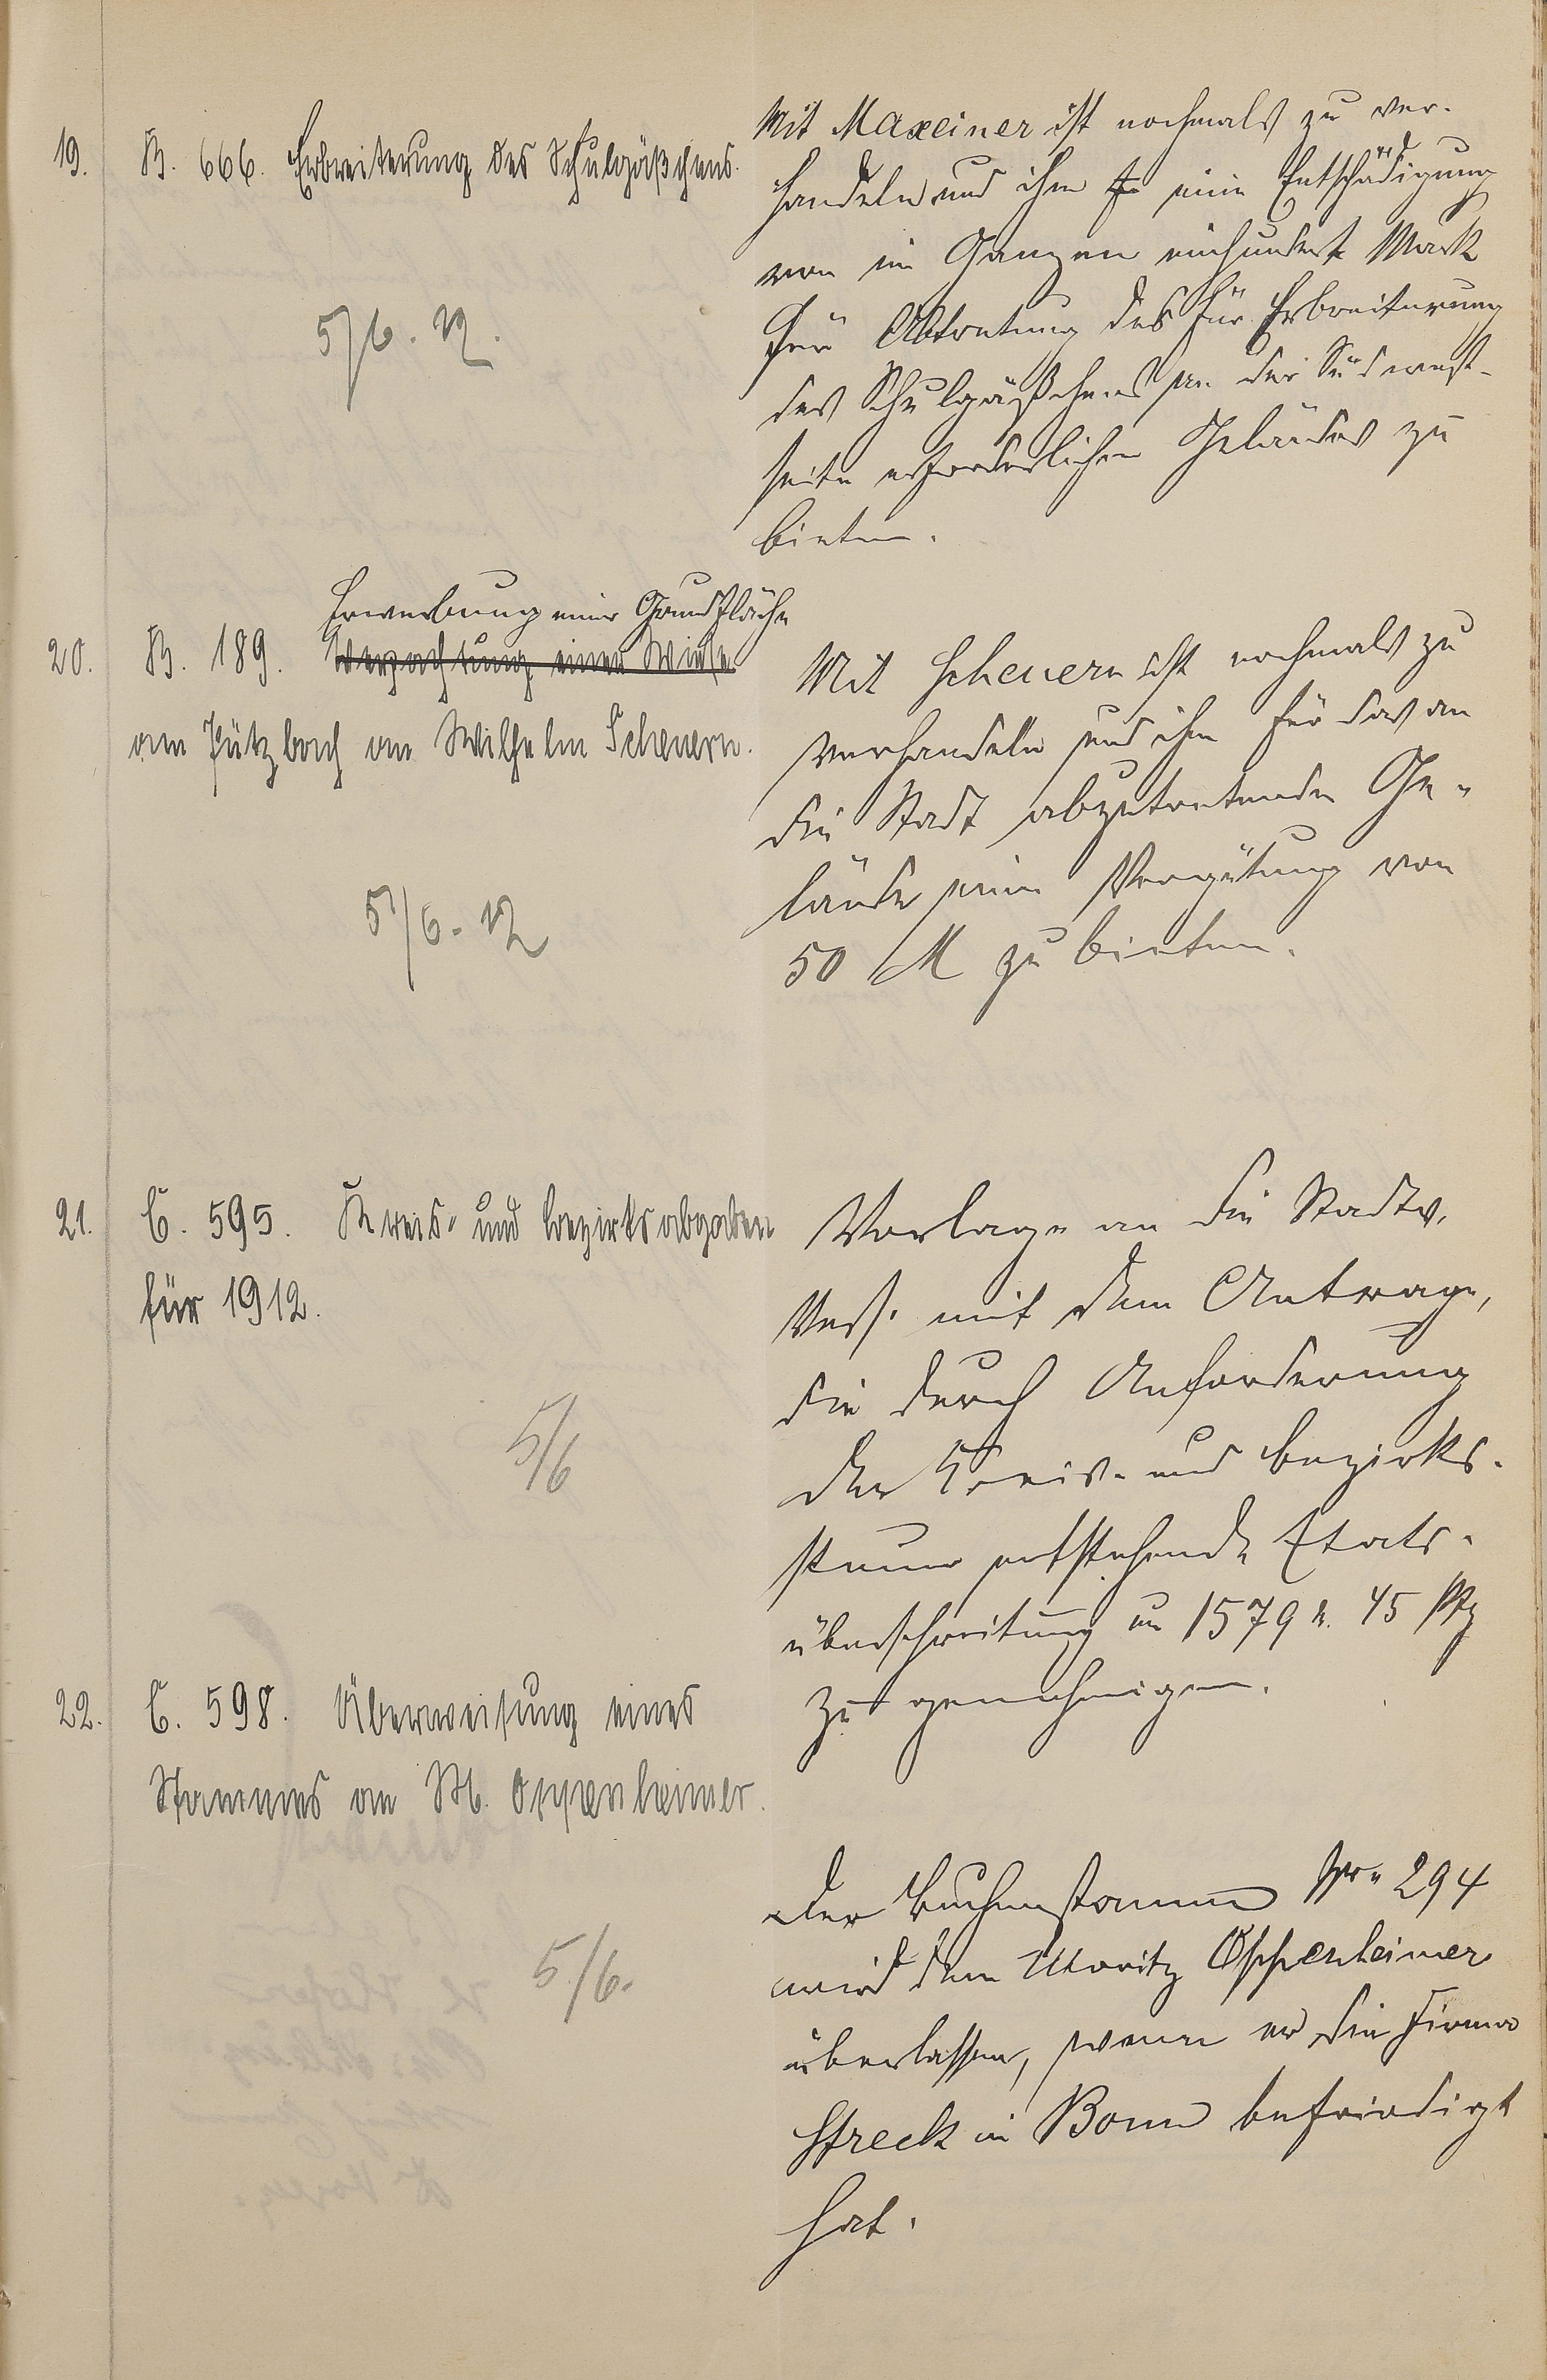 19. B. 666. Erbreiterung des Schulgäßchens.
5/6. 12.
Mit Maxeiner ist nochmals zu ver-
handeln und ihm eine Entschädigung
von im Ganzen einhundert Mark
für Abtretung des für Erbreiterung
des Schulgäßchens an der Südwest-
seite erforderlichen Geländes zu
bieten.
Erwerbung einer Grundfläche
20. B. 189. Verpachtung einer Wiese
am Pützbach an Wilhelm Scheuern.
5/6. 12
Mit Scheuern ist nochmals zu
verhandeln und ihm für das an
die Stadt abzutretende Ge-
lände eine Vergütung von
50 M zu bieten.
21. C. 595. Kreis- und Bezirksabgaben
für 1912.
5/6
Vorlage an die Stadtv.
Vers. mit dem Antrage,
die durch Anforderung
der Kreis- und Bezirks-
steuer entstehende Etats-
überschreitung um 1579 M. 45 Pfg
zu genehmigen.
22. C. 598. Überweisung eines
Stammes an M. Oppenheimer.
5/6.
Der Buchenstamm Nr. 294
wird dem Moritz Oppenheimer
überlassen, wenn er die Firma
Streck in Bonn befriedigt
hat.